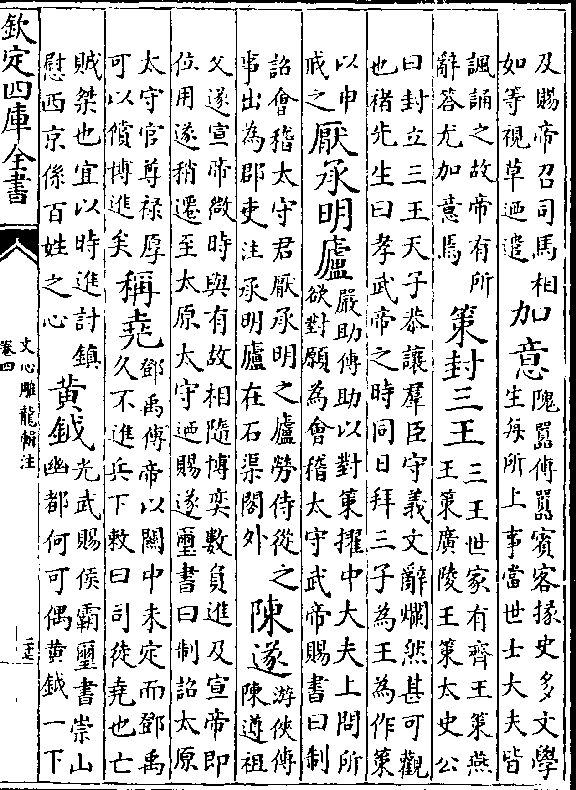 及賜帝召司馬相
如等視草迺遣
加意
隗囂傳囂賓客掾史多文學
生每所上事當世士大夫皆
諷誦之故帝有所
辭答尤加意焉
策封三王
三王世家有齊王策燕
王策廣陵王策太史公
曰封立三王天子恭讓羣臣守義文辭爛然甚可觀
也褚先生曰孝武帝之時同日拜三子為王為作策
以申
戒之
厭承明廬
嚴助傳助以對策擢中大夫上問所
欲對願為會稽太守武帝賜書曰制
詔會稽太守君厭承明之廬勞侍從之
事出為郡吏注承明廬在石渠閣外
陳遂
游俠傳
陳遵祖
父遂宣帝微時與有故相隨博奕數負進及宣帝即
位用遂稍遷至太原太守迺賜遂璽書曰制詔太原
太守官尊祿厚
可以償博進矣
稱堯
鄧禹傳帝以關中未定而鄧禹
久不進兵下敕曰司徒堯也亡
賊桀也宜以時進討鎮
慰西京係百姓之心
黃鉞
光武賜侯霸璽書崇山
幽都何可偶黃鉞一下
欽定四庫全書
文心雕龍輯注
卷四